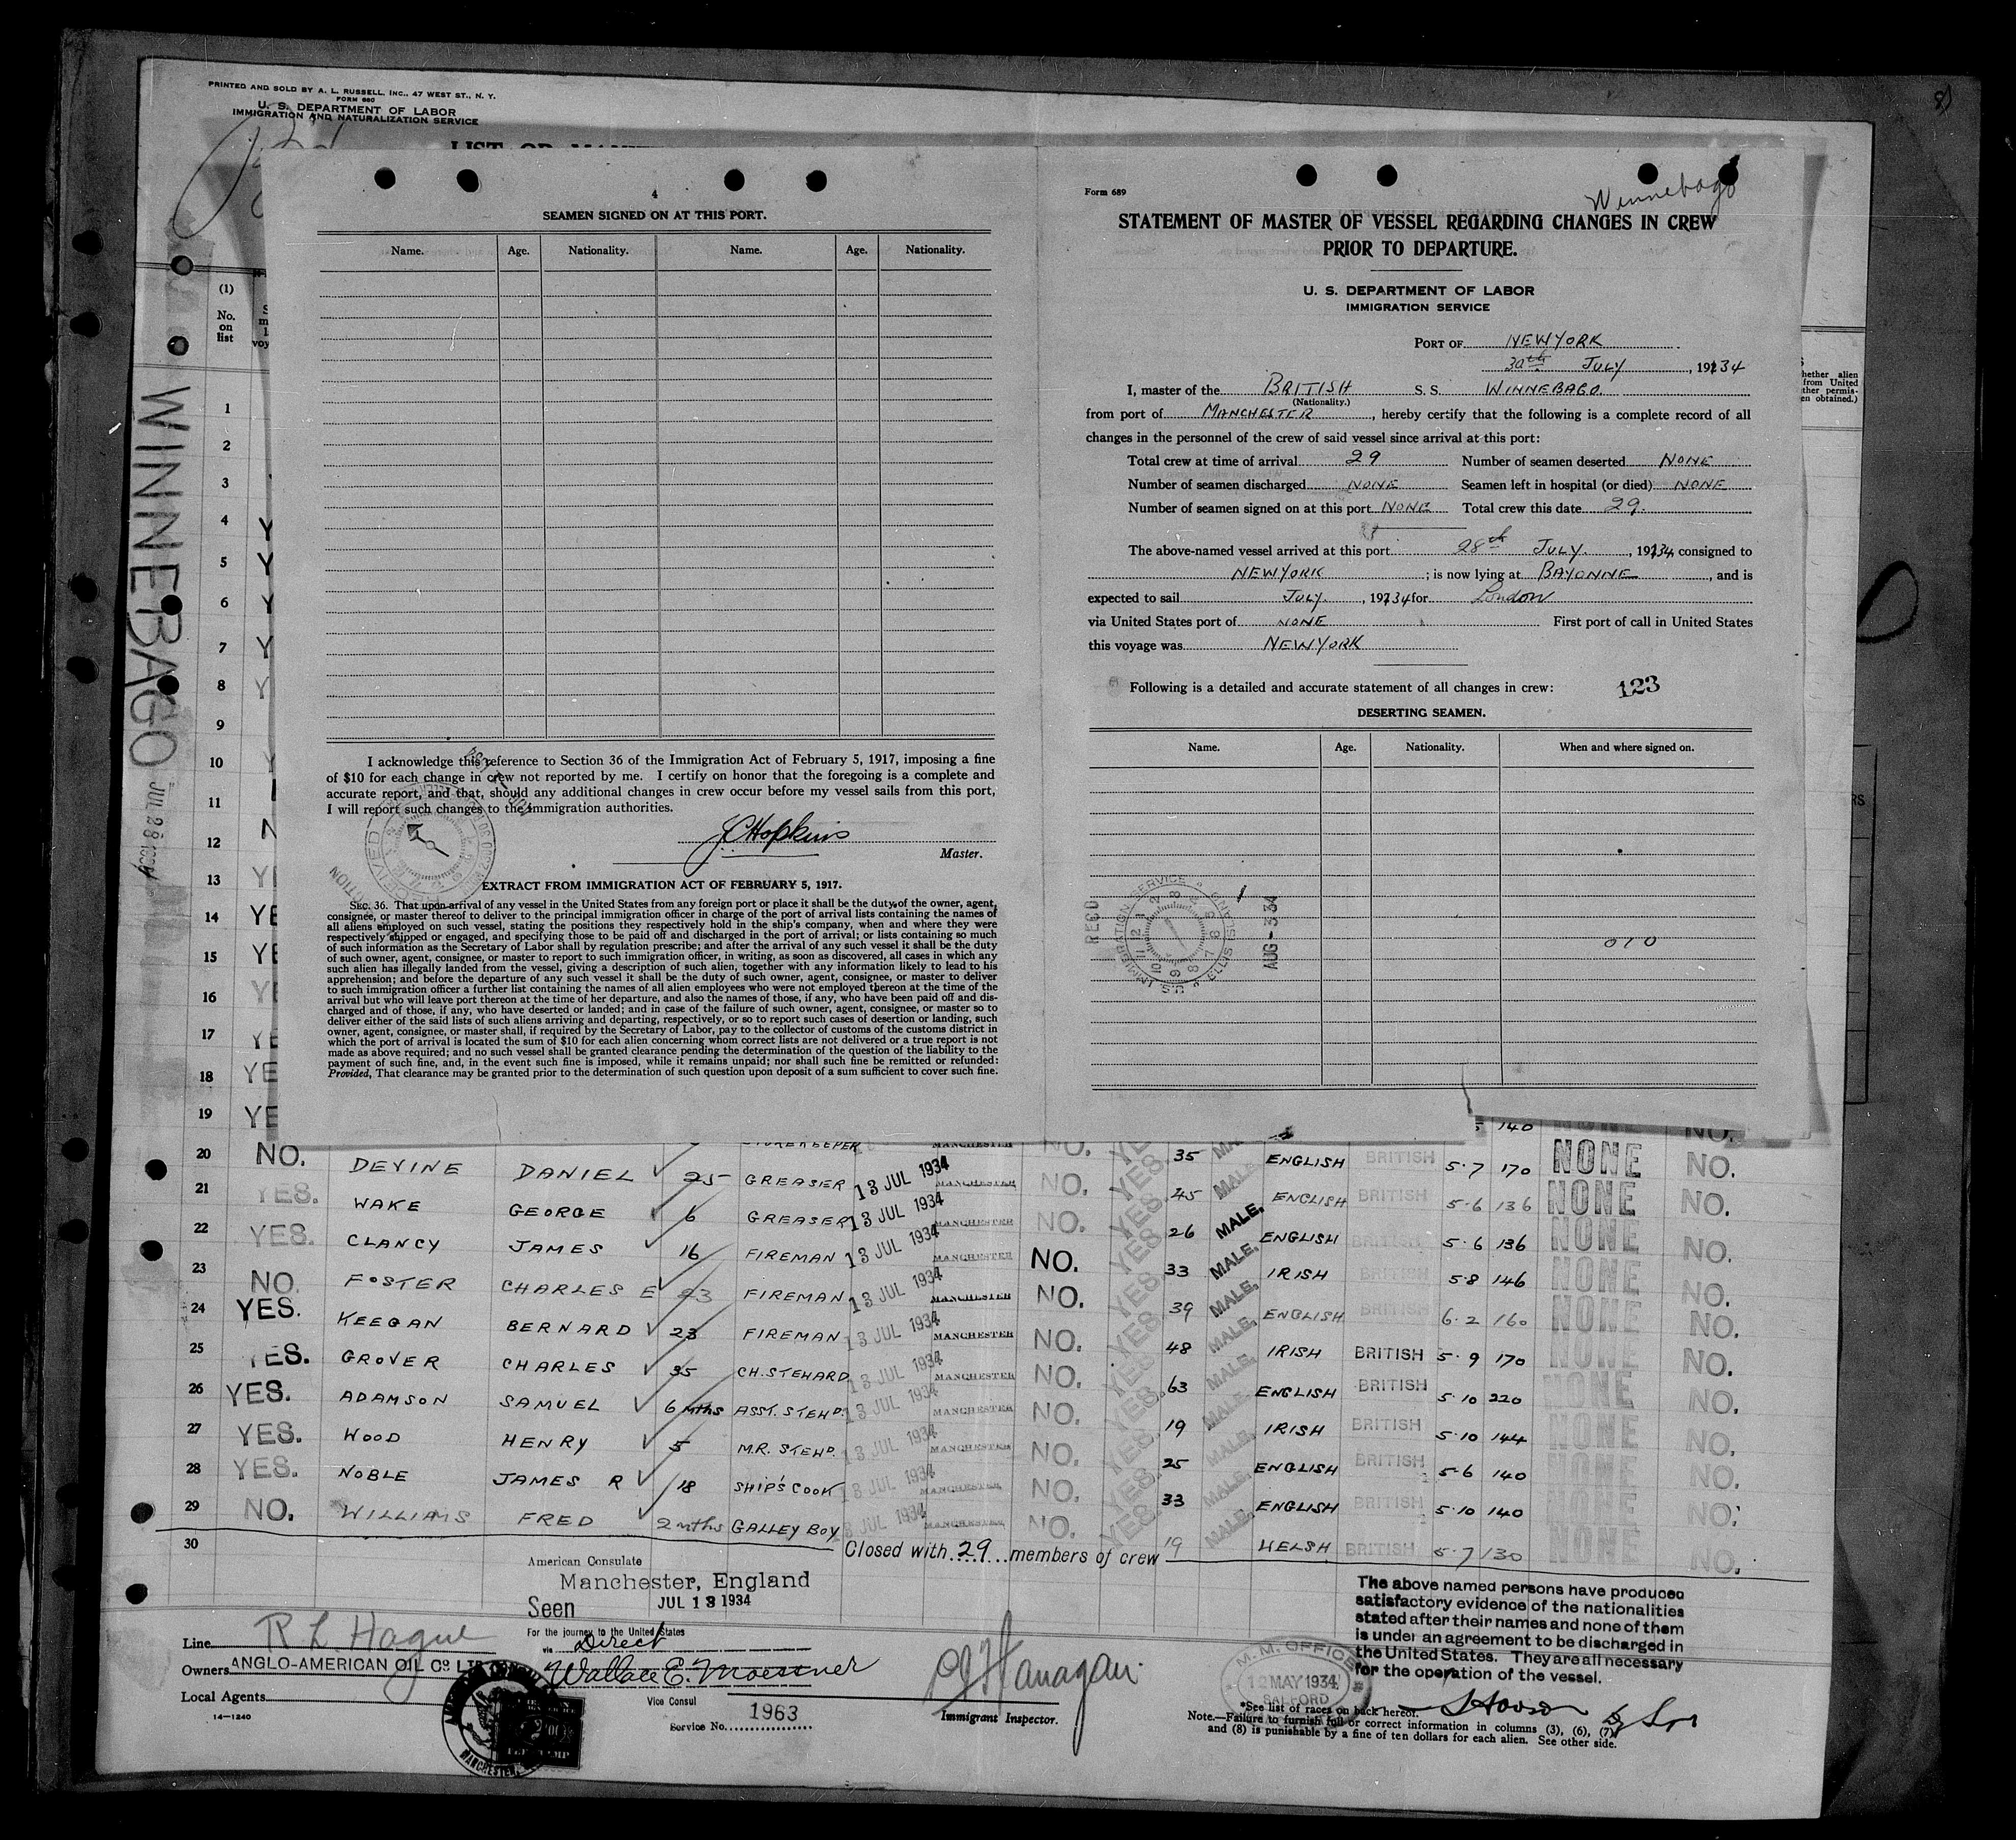 PRINTED AND SOLD BY A. L. RUSSELL, INC., 47 WEST ST., N. Y.
FORM 680
U. S. DEPARTMENT OF LABOR
IMMIGRATION AND NATURALIZATION SERVICE
(1)
No.
on
list
WINNEBAGO
JUL 28 1934
4
SEAMEN SIGNED ON AT THIS PORT.
Name. Age. Nationality. Name. Age. Nationality.
I acknowledge this reference to Section 36 of the Immigration Act of February 5, 1917, imposing a fine
of $10 for each change in crew not reported by me. I certify on honor that the foregoing is a complete and
accurate report, and that, should any additional changes in crew occur before my vessel sails from this port,
I will report such changes to the immigration authorities.
J C Hopkins
Master.
EXTRACT FROM IMMIGRATION ACT OF FEBRUARY 5, 1917.
SEC. 36. That upon arrival of any vessel in the United States from any foreign port or place it shall be the duty of the owner, agent,
consignee, or master thereof to deliver to the principal immigration officer in charge of the port of arrival lists containing the names of
all aliens employed on such vessel, stating the positions they respectively hold in the ship's company, when and where they were
respectively shipped or engaged, and specifying those to be paid off and discharged in the port of arrival; or lists containing so much
of such information as the Secretary of Labor shall by regulation prescribe; and after the arrival of any such vessel it shall be the duty
of such owner, agent, consignee, or master to report to such immigration officer, in writing, as soon as discovered, all cases in which any
such alien has illegally landed from the vessel, giving a description of such alien, together with any information likely to lead to his
apprehension; and before the departure of any such vessel it shall be the duty of such owner, agent, consignee, or master to deliver
to such immigration officer a further list containing the names of all alien employees who were not employed thereon at the time of the
arrival but who will leave port thereon at the time of her departure, and also the names of those, if any, who have been paid off and dis-
charged and of those, if any, who have deserted or landed; and in case of the failure of such owner, agent, consignee, or master so to
deliver either of the said lists of such aliens arriving and departing, respectively, or so to report such cases of desertion or landing, such
owner, agent, consignee, or master shall, if required by the Secretary of Labor, pay to the collector of customs of the customs district in
which the port of arrival is located the sum of $10 for each alien concerning whom correct lists are not delivered or a true report is not
made as above required; and no such vessel shall be granted clearance pending the determination of the question of the liability to the
payment of such fine, and, in the event such fine is imposed, while it remains unpaid; nor shall such fine be remitted or refunded:
Provided, That clearance may be granted prior to the determination of such question upon deposit of a sum sufficient to cover such fine.
Form 689
Winnebago
STATEMENT OF MASTER OF VESSEL REGARDING CHANGES IN CREW
PRIOR TO DEPARTURE.
U. S. DEPARTMENT OF LABOR
IMMIGRATION SERVICE
PORT OF NEW YORK
30th JULY, 1934
I, master of the BRITISH S. S. WINNEBAGO.
(Nationality.)
from port of MANCHESTER, hereby certify that the following is a complete record of all
changes in the personnel of the crew of said vessel since arrival at this port:
Total crew at time of arrival 29 Number of seamen deserted NONE
Number of seamen discharged NONE Seamen left in hospital (or died) NONE
Number of seamen signed on at this port NONE Total crew this date 29.
The above-named vessel arrived at this port 28th JULY, 1934, consigned to
NEW YORK; is now lying at BAYONNE, and is
expected to sail JULY, 1934 for London
via United States port of NONE First port of call in United States
this voyage was NEW YORK
Following is a detailed and accurate statement of all changes in crew: 123
DESERTING SEAMEN.
Name. Age. Nationality. When and where signed on.
RECD
U.S. IMMIGRATION SERVICE ELLIS ISLAND
AUG - 3 34
1
2
3
4
5
6
7
8
9
10
11
12
13
14
15
16
17
18
19
20 NO. DEVINE DANIEL 25 GREASER 13 JUL 1934 MANCHESTER NO. YES. 35 MALE. ENGLISH BRITISH 5·7 170 NONE NO.
21 YES. WAKE GEORGE 6 GREASER 13 JUL 1934 MANCHESTER NO. YES. 45 MALE. ENGLISH BRITISH 5·6 136 NONE NO.
22 YES. CLANCY JAMES 16 FIREMAN 13 JUL 1934 MANCHESTER NO. YES. 26 MALE. ENGLISH BRITISH 5·6 136 NONE NO.
23 NO. FOSTER CHARLES E 23 FIREMAN 13 JUL 1934 MANCHESTER NO. YES. 33 MALE. IRISH BRITISH 5·8 146 NONE NO.
24 YES. KEEGAN BERNARD 23 FIREMAN 13 JUL 1934 MANCHESTER NO. YES. 39 MALE. ENGLISH BRITISH 6·2 160 NONE NO.
25 YES. GROVER CHARLES 35 CH. STEWARD 13 JUL 1934 MANCHESTER NO. YES. 48 MALE. IRISH BRITISH 5·9 170 NONE NO.
26 YES. ADAMSON SAMUEL 6 mths ASST. STEWD. 13 JUL 1934 MANCHESTER NO. YES. 63 MALE. ENGLISH BRITISH 5·10 220 NONE NO.
27 YES. WOOD HENRY 5 M.R. STEWD. 13 JUL 1934 MANCHESTER NO. YES. 19 MALE. IRISH BRITISH 5·10 144 NONE NO.
28 YES. NOBLE JAMES R 18 SHIP'S COOK 13 JUL 1934 MANCHESTER NO. YES. 25 MALE. ENGLISH BRITISH 5·6 140 NONE NO.
29 NO. WILLIAMS FRED 2 mths GALLEY BOY 13 JUL 1934 MANCHESTER NO. YES. 33 MALE. ENGLISH BRITISH 5·10 140 NONE NO.
30 Closed with 29 members of crew 19 WELSH BRITISH 5·7 130 NONE NO.
American Consulate
Manchester, England
Seen JUL 13 1934
For the journey to the United States
via Direct
Wallace E. Moessner
Vice Consul
Service No. 1963
Line R L Hague
Owners ANGLO-AMERICAN OIL Co LTD
Local Agents
14—1240
Immigrant Inspector.
M. M. OFFICE
12 MAY 1934
SALFORD
The above named persons have produced
satisfactory evidence of the nationalities
stated after their names and none of them
is under an agreement to be discharged in
the United States. They are all necessary
for the operation of the vessel.
*See list of races on back hereof.
Note.—Failure to furnish full or correct information in columns (3), (6), (7)
and (8) is punishable by a fine of ten dollars for each alien. See other side.